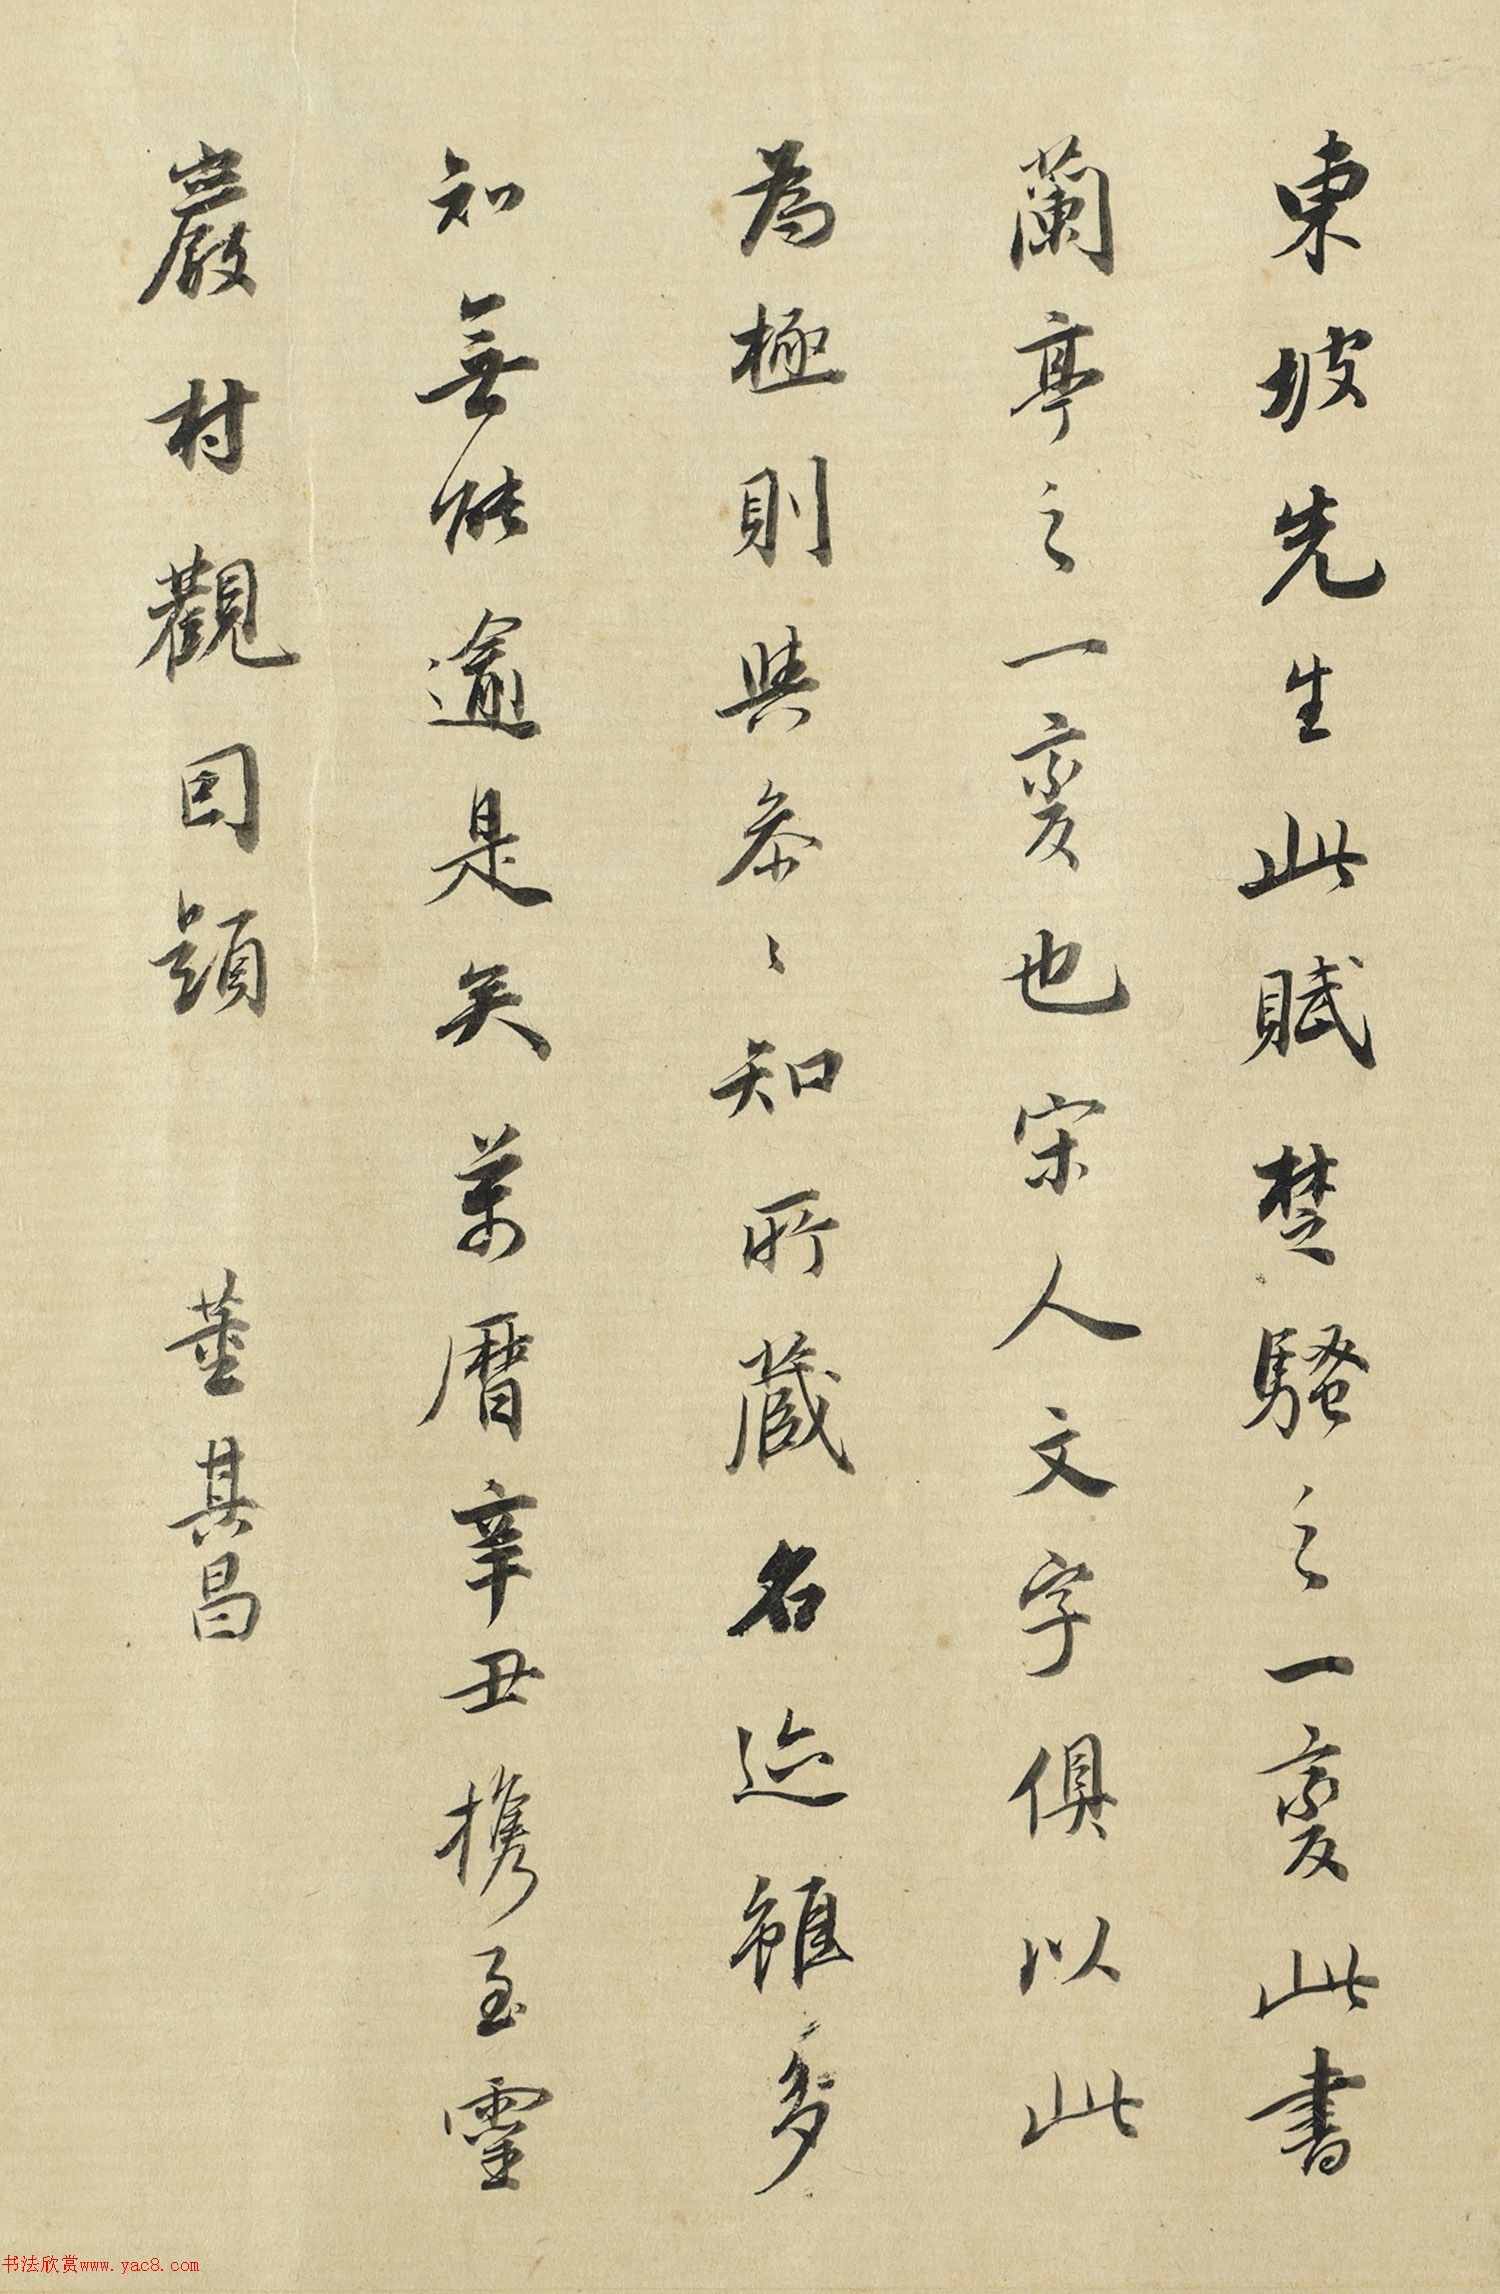 東坡先生此賦楚騷之一變此書
蘭亭之一變也宋人文字俱以此
為極則與叅〻知所藏名迹雖多
知無能逾是矣萬曆辛丑携至靈
巖村觀因題
董其昌
书法欣赏www.yac8.com